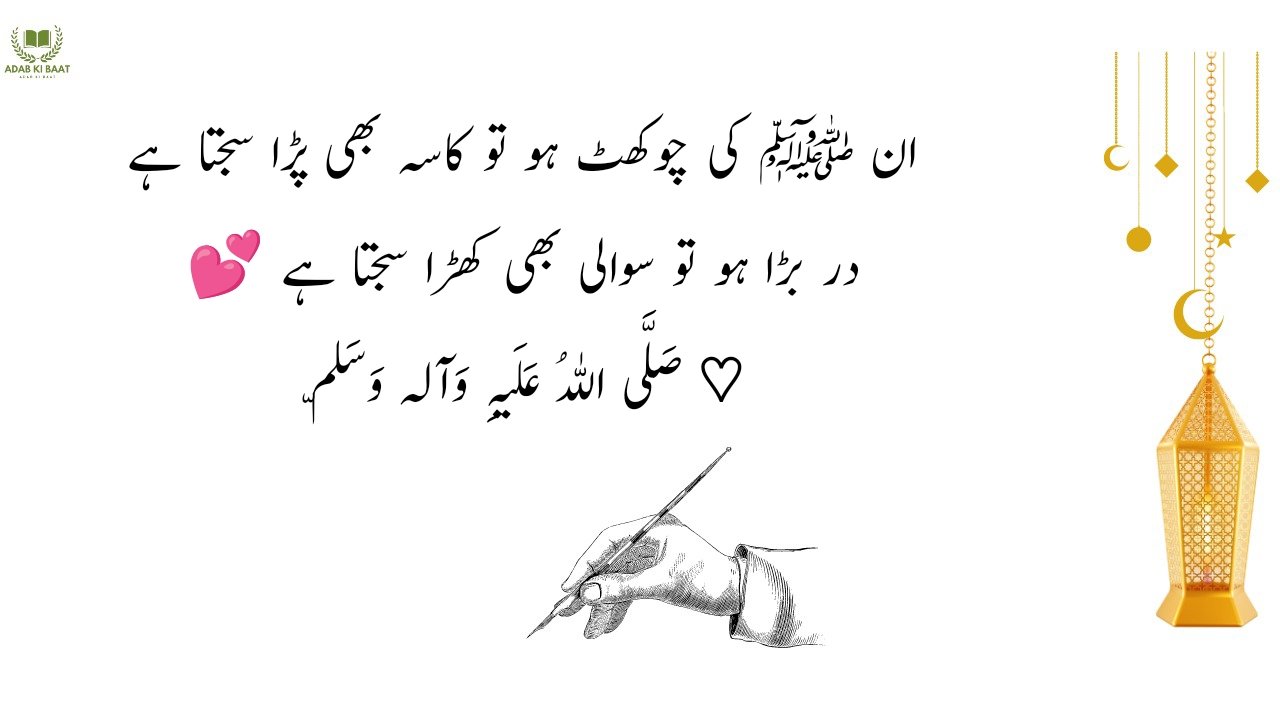 ADAB KI BAAT
ADAB KI BAAT
ان ﷺ کی چوکھٹ ہو تو کاسہ بھی پڑا سجتا ہے
در بڑا ہو تو سوالی بھی کھڑا سجتا ہے 💕
♡ صَلَّی اللہُ عَلَیہِ وَآلہ وَسَلمّ